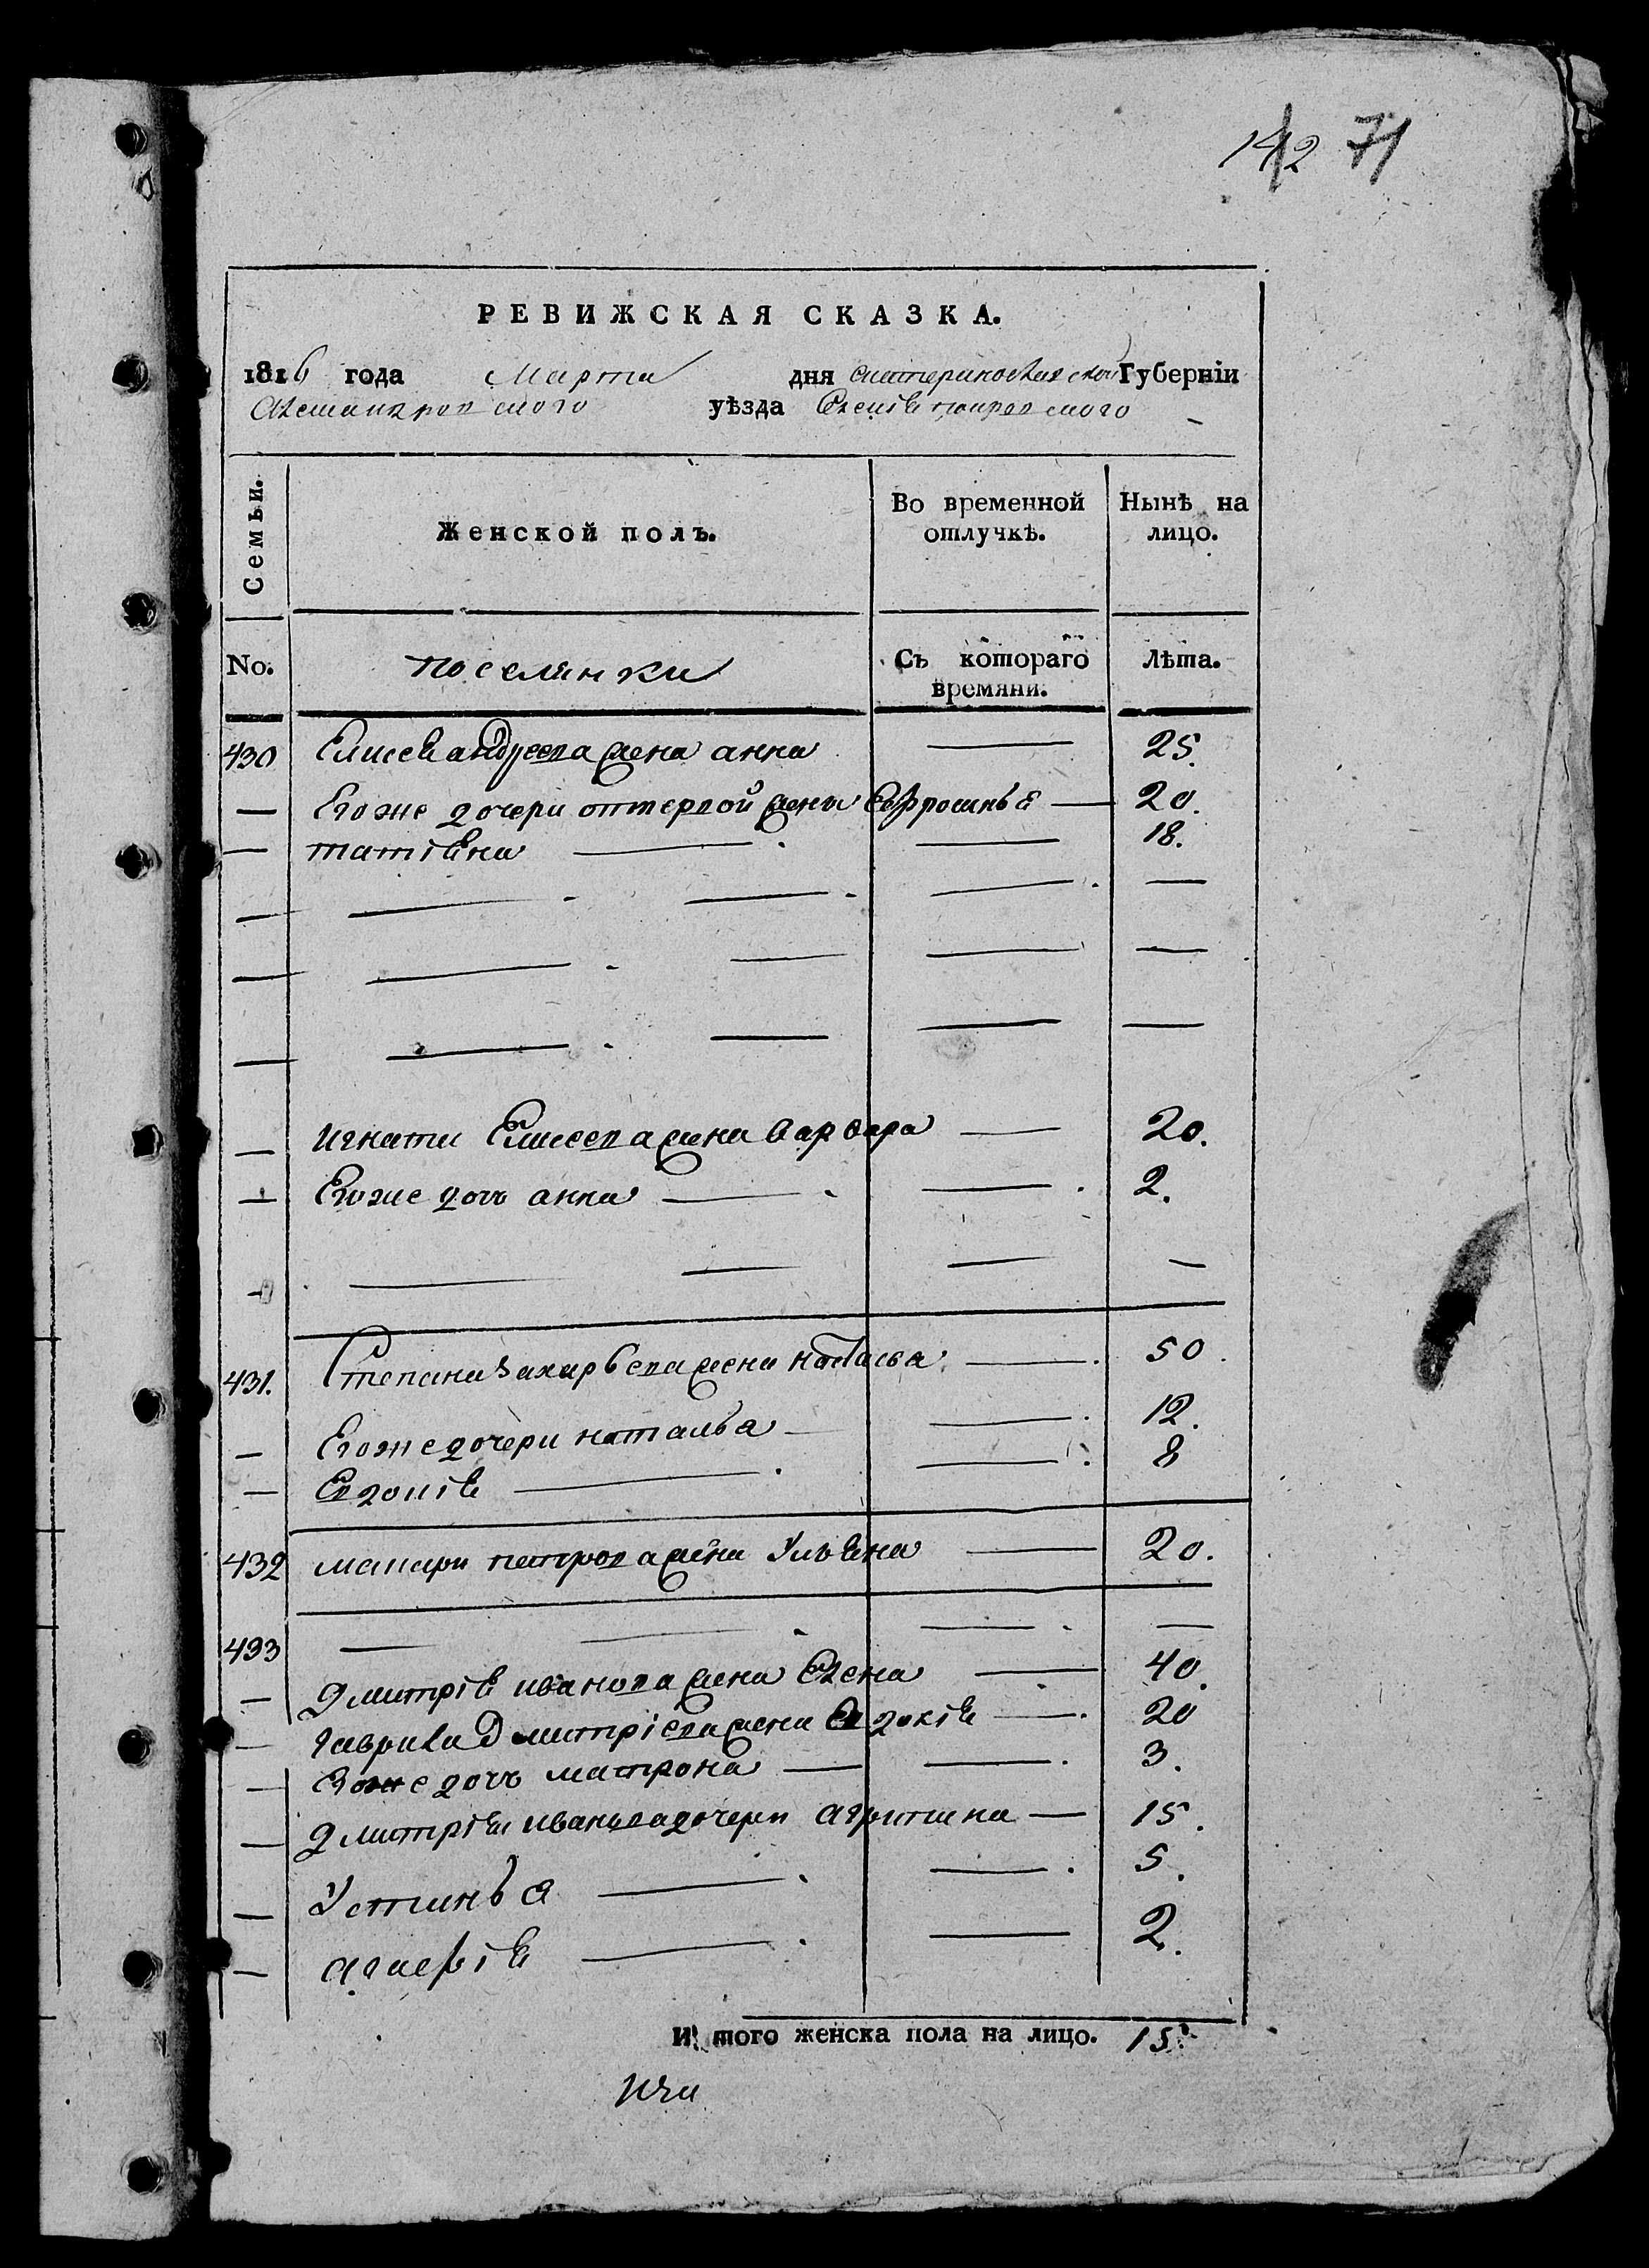 142 71
РЕВИЖСКАЯ СКАЗКА.
1816 года Марта дня екатеринославской Губернїи
Александровского уѣзда
Семьи. Женской полъ. Во временной отлучкѣ. Нынѣ на лицо.
No. поселянки Съ котораго времяни. Лѣта.
430 Елисея андреева жена анна — 25.
— Егоже дочери отпервой жены Евфросинья — 20.
— татїяна — — 18.
— — — — —
— — — — —
— — — — —
— игната Елисеева жена варвара — 20.
— Егоже дочь анна — — 2.
— — — — —
431. Степана Захарьева жена настасья — 50.
— Егоже дочери наталья — — 12.
— Евдокїя — — 8
432 макара петрова жена Ульяна — 20.
433 — — — —
— дмитрїя иванова жена Елена — 40.
— гаврила Дмитрїева жена Евдокїя — 20
— Егоже дочь матрона — — 3.
— дмитрїя иванова дочери агрипина — 15.
— Устинья — — 5.
— агафїя — — 2.
И того женска пола на лицо. 15.